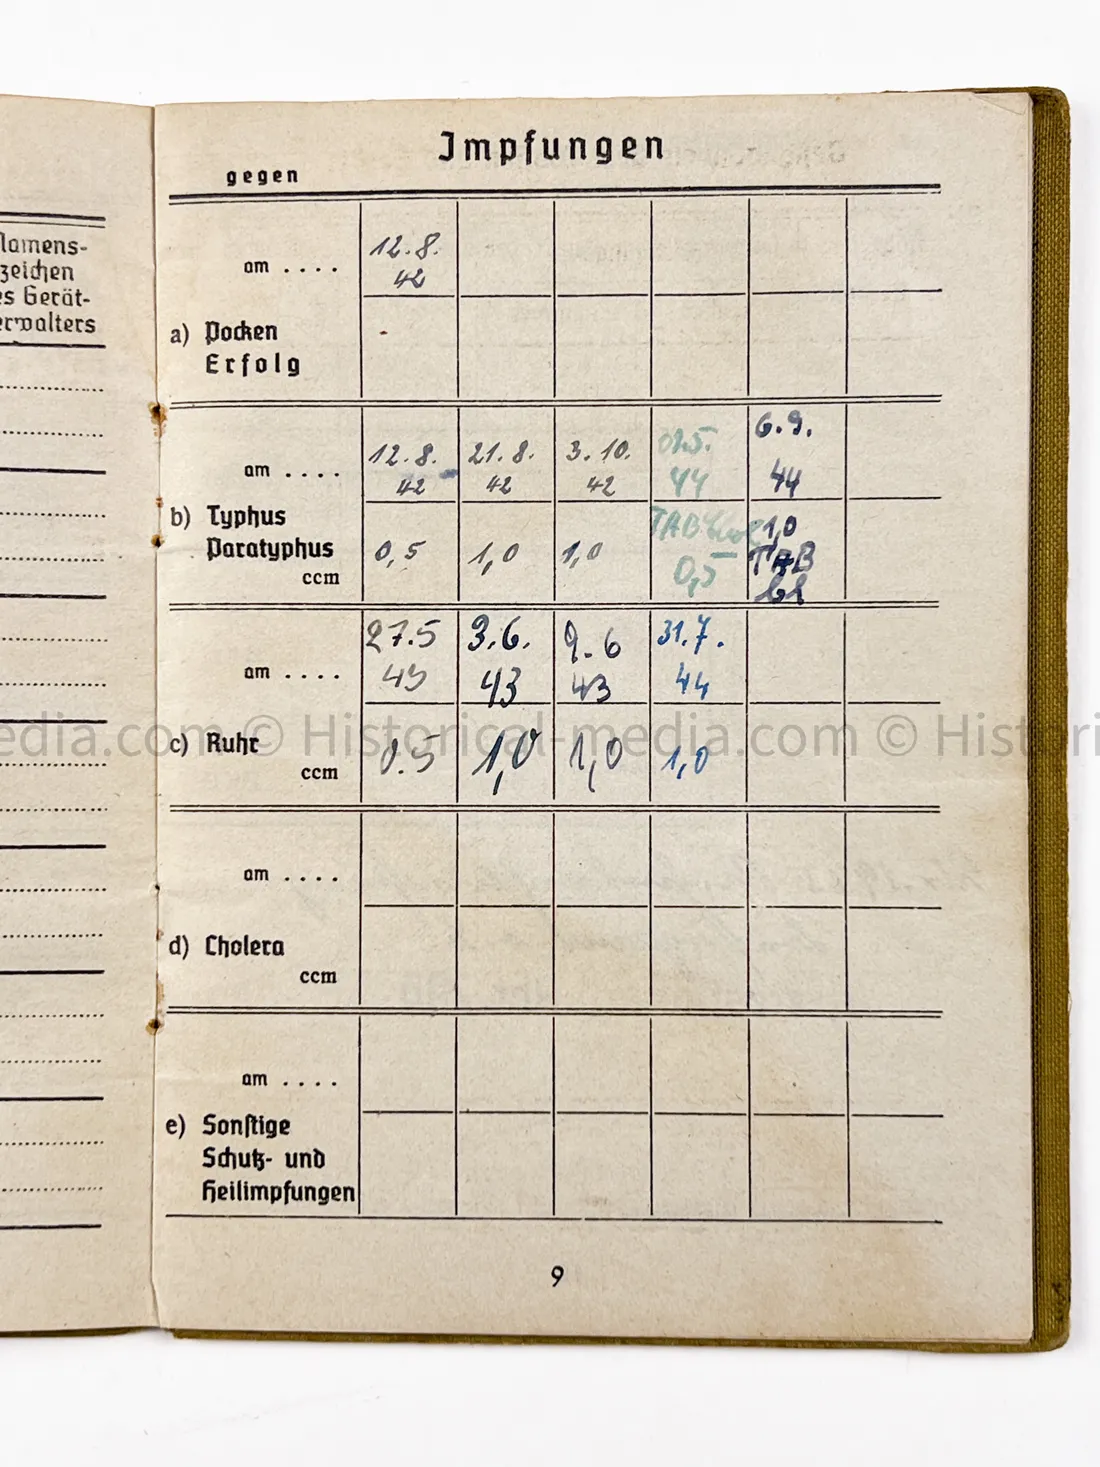 Namens-
zeichen
es Gerät-
erwalters
Impfungen
gegen
am . . . .
12.8.
42
a) Pocken
Erfolg
am . . . .
12.8. 21.8. 3.10. 6.9.
42 42 42 44 44
b) Typhus
Paratyphus
ccm
0,5 1,0 1,0 TAB 0,5 1,0
TAB
am . . . .
27.5 3.6. 9.6 31.7.
43 43 43 44
c) Ruhr
ccm
0.5 1,0 1,0 1,0
am . . . .
d) Cholera
ccm
am . . . .
e) Sonstige
Schutz- und
Heilimpfungen
9
edia.com © Historical-media.com © Histori